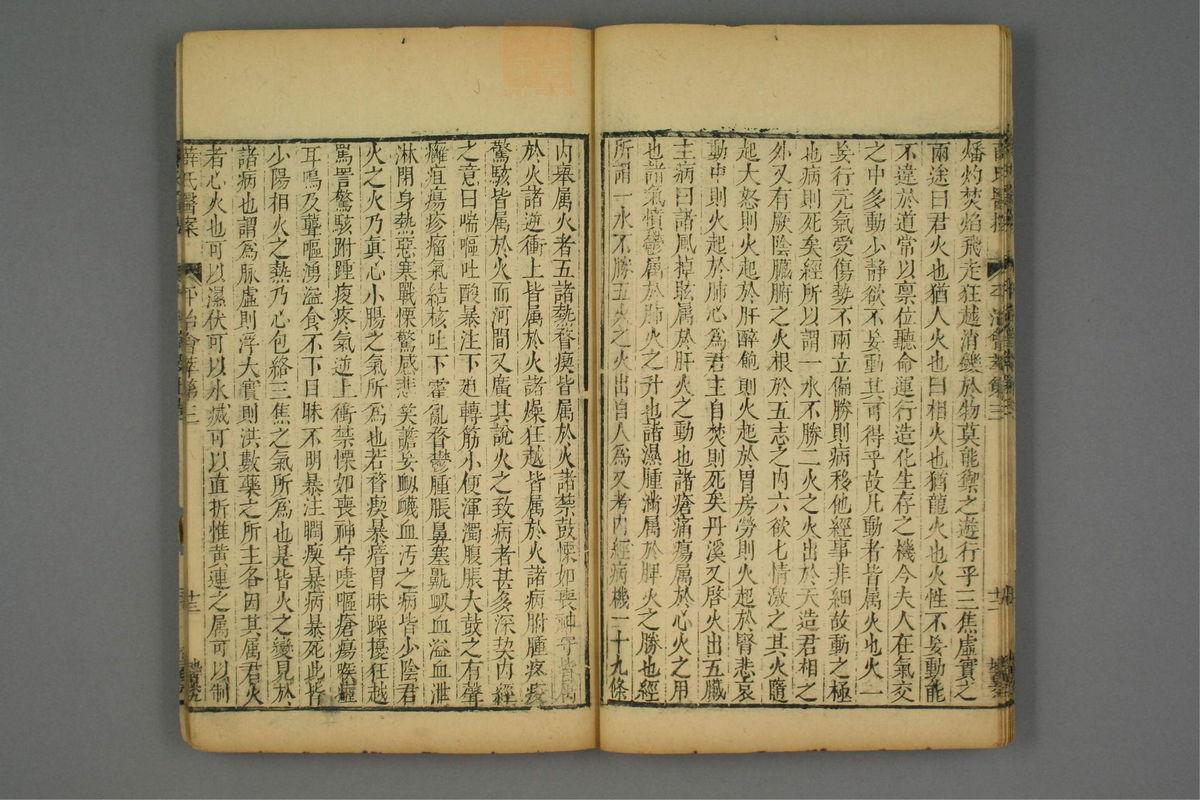 燔灼焚焰飛走狂越消爍於物莫能禦之遊行乎三焦虛實之
兩途曰君火也猶人火也曰相火也猶龍火也火性不妄動能
不違於道常以禀位聽命運行造化生存之機今夫人在氣交
之中多動少靜欲不妄動其可得乎故凡動者皆属火也火一
妄行元氣受傷勢不兩立偏勝則病移他經事非細故動之極
也病則死矣經所以謂一水不勝二火之火出於天造君相之
外又有厥陰臟腑之火根於五志之内六欲七情激之其火隨
起大怒則火起於肝醉飽則火起於胃房勞則火起於腎悲哀
動中則火起於肺心為君主自焚則死矣丹溪又啓火出五臟
主病曰諸風掉眩属於肝火之動也諸瘡痛瘍属於心火之用
也諸氣憤鬱属於肺火之升也諸濕腫滿属於脾火之勝也經
所謂一水不勝五火之火出自人為又考内經病機一十九條
内舉属火者五諸熱瞀瘈皆属於火諸禁鼓慄如喪神守皆属
於火諸逆衝上皆属於火諸燥狂越皆属於火諸病胕腫疼痠
驚駭皆属於火而河間又廣其說火之致病者甚多深契内經
之意曰喘嘔吐酸暴注下廹轉筋小便渾濁腹脹大鼓之有聲
癰疽瘍疹瘤氣結核吐下霍亂瞀鬱腫脹鼻塞鼽衂血溢血泄
淋閉身熱惡寒戰慄驚惑悲笑譫妄衂衊血汚之病皆少陰君
火之火乃真心小腸之氣所為也若瞀瘈暴瘖冒昧躁擾狂越
罵詈驚駭胕踵痠疼氣逆上衝禁慄如喪神守嚏嘔瘡瘍喉瘂
耳鳴及聾嘔湧溢食不下目昧不明暴注瞤瘈暴病暴死此皆
少陽相火之熱乃心包絡三焦之氣所為也是皆火之變見於
諸病也謂為脈虛則浮大實則洪數藥之所主各因其属君火
者心火也可以濕伏可以水滅可以直折惟黄連之属可以制
薛氏醫案 平治會萃第三 廿三